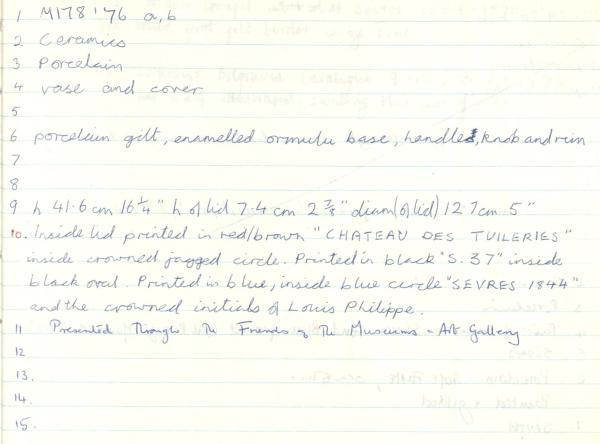 1 M178'76 a,b
2 Ceramics
3 Porcelain
4 vase and cover
5
6 porcelain gilt, enamelled ormulu base, handles, knob and rim
7
8
9 h 41.6cm 16 1/4" h of lid 7.4 cm 2 7/8" diam(of lid) 12.7cm 5"
10. Inside lid printed in red/brown "CHATEAU DES TUILERIES"
inside crowned jagged circle. Printed in black "S.37" inside
black oval. Printed in blue, inside blue circle "SEVRES 1844"
and the crowned initials of Louis Philippe.
11 Presented Through the Friends of the Museums & Art Gallery
12
13.
14.
15.